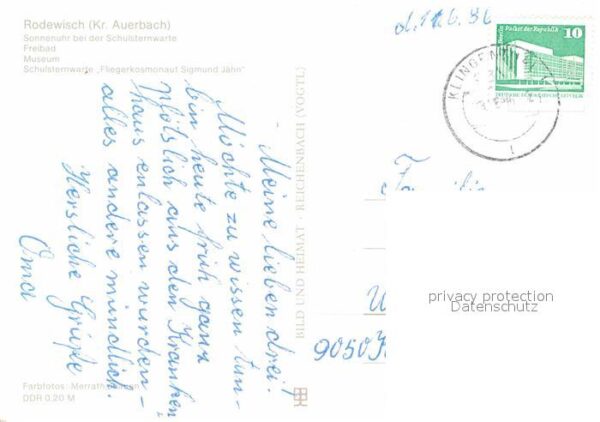 Rodewisch (Kr. Auerbach)
Sonnenuhr bei der Schulsternwarte
Freibad
Museum
Schulsternwarte „Fliegerkosmonaut Sigmund Jähn"
- Meine lieben drei!
Möchte zu wissen tun-
bin heute früh ganz
plötzlich aus den Kranken
haus enlassen wurden-
alles andere mündlich.
Herzliche Grüße
Oma
Farbfotos: Merrath,
DDR 0,20 M
BILD UND HEIMAT · REICHENBACH (VOGTL)
Berlin Palast der Republik
10
KLINGENTHAL
1
privacy protection
Datenschutz
9050